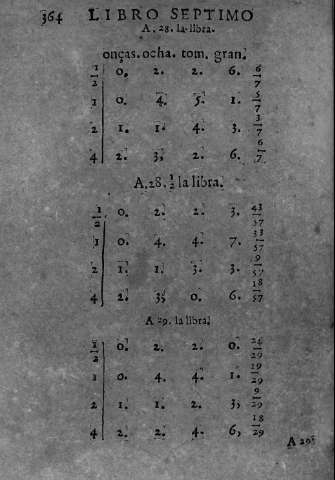 364 LIBRO SEPTIMO
A. 28. la libra.
onças. ocha. tom. gran.
1/2 0. 2. 2. 6. 6/7
1 0. 4. 5. 1. 5/7
2 1. 1. 4. 3. 3/7
4 2. 3. 2. 6. 6/7
A. 28. 1/2 la libra.
1/2 0. 2. 2. 3. 43/57
1 0. 4. 4. 7. 33/57
2 1. 1. 3. 3. 9/57
4 2. 3. 0. 6. 18/57
A 29. la libra.
1/2 0. 2. 2. 0. 24/29
1 0. 4. 4. 1. 19/29
2 1. 1. 2. 3, 9/29
4 2. 2. 4. 6, 18/29
A 29